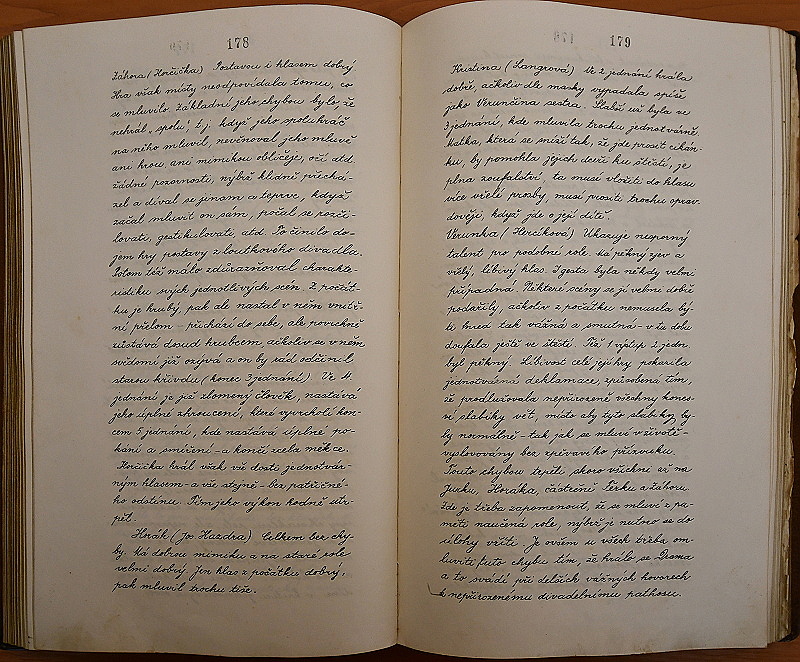 178
Záhora (Horčička) Postavou i hlasem dobrý.
Hra však místy neodpovídala tomu, co
se mluvilo. Základní jeho chybou bylo, že
nehrál „spolu", t.j. když jeho spoluhráč
na něho mluvil, nevěnoval jeho mluvě
ani hrou, ani mimikou obličeje, očí atd.
žádné pozornosti, nýbrž klidně přechá-
zel a díval se jinam a teprve, když
začal mluvit on sám, počal se rozči-
lovati, gestikulovati, atd. To činilo do-
jem hry postavy z loutkového divadla.
Potom též málo zdůrazňoval charakte-
ristiku svých jednotlivých scen. Z počát-
ku je hrubý, pak ale nastal v něm vnitř-
ní přelom - přichází do sebe, ale povrchně
zůstává dosud hrubcem, ačkoliv se v něm
svědomí již ozývá a on by rád odčinil
starou křivdu (konec 3 jednání). Ve 4.
jednání je již zlomený člověk, nastává
jeho úplné zhroucení, které vyvrcholí kon-
cem 5 jednání, kde nastává úplné po-
kání a smíření - a končí zcela měkce.
Horčička hrál však vše dosti jednotvár-
ným hlasem - a vše stejně - bez patřičné-
ho odstínu. Tím jeho výkon hodně utr-
pěl.
Horák (Jos Hazdra) Celkem bez chy-
by. Má dobrou mimiku a na staré role
velmi dobrý. Jen hlas z počátku dobrý,
pak mluvil trochu tiše.
179
Kristina (Langrová) Ve 2 jednání hrála
dobře, ačkoliv dle masky vypadala spíše
jako Verunčina sestra. Slabší už byla ve
3 jednání, kde mluvila trochu jednotvárně.
Matka, která se sníží tak, že jde prosit cikán-
ku, by pomohla jejich dceři ku štěstí, je
plna zoufalství, ta musí vložiti do hlasu
více vřelé prosby, musí prositi trochu oprav-
dověji, když jde o její dítě.
Verunka (Hercíková) Ukazuje nesporný
talent pro podobné role. Má pěkný zjev a
vřelý, libivý hlas. I gesta byla někdy velmi
případná. Některé sceny se jí velmi dobře
podařily, ačkoliv z počátku nemusela bý-
ti hned tak vážná a smutná - v tu dobu
doufala ještě ve štěstí. Též 1 výstup 2 jedn.
byl pěkný. Líbivost celé její hry pokazila
jednotvárná deklamace, způsobená tím,
že prodlužovala nepřirozeně všechny konco-
vé slabiky vět, místo aby tyto slabiky by-
ly normálně - tak jak se mluví v životě -
vyslovovány bez zpěvavého přízvuku.
Touto chybou trpěli skoro všichni až na
Jurku, Horáka, částečně Terku a Záhoru.
Zde je třeba zapomenout, že se mluví z pa-
měti naučená role, nýbrž je nutno se do
úlohy vžíti. Je ovšem u všech třeba om-
luviti tuto chybu tím, že hrálo se Drama
a to svádí při delších vážných hovorech
k nepřirozenému divadelnímu pathosu.